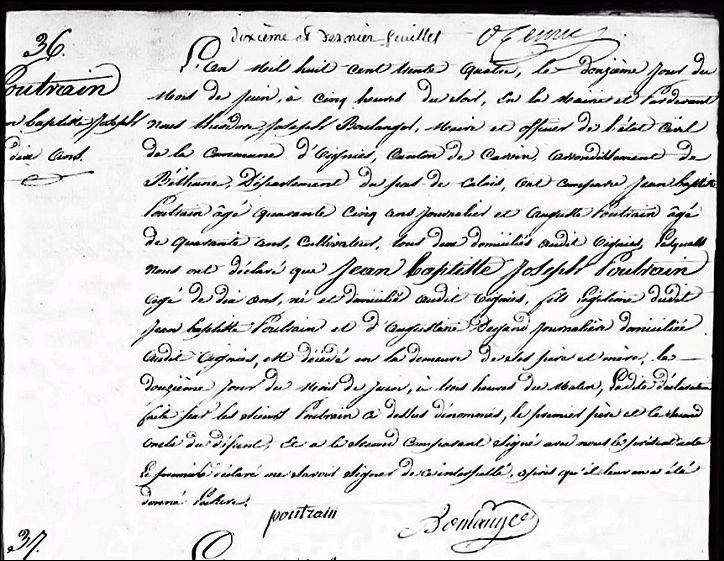 dixième et dernier feuillet
36.
Poutrain
n baptiste Joseph
dix ans.
L'an Mil huit cent trente quatre, le douzième jour du
Mois de Juin, à cinq heures du soir, En la Mairie et Pardevant
Nous Joseph Boulanger, Maire et officier de l'état civil
de la Commune d'Oignies, Canton de Carvin, arrondissement de
Béthune, Département du pas de Calais, ont comparu Jean baptiste
Poutrain âgé quarante cinq ans journalier et Auguste Poutrain âgé
de quarante ans, Cultivateur, tous deux domiciliés audit Oignies, lesquels
Nous ont déclaré que Jean baptiste Joseph Poutrain
âgé de dix ans, né et domicilié audit Oignies, fils légitime dudit
Jean baptiste Poutrain et d'Augustine journalière domiciliée
audit Oignies, est décédé en la demeure de ses père et mère, le
douzième jour du Mois de Juin, à trois heures du Matin, la dite déclaration
faite par les sieurs Poutrain ci dessus dénommés, le premier père et le second
oncle du défunt, Et a le second comparant signé avec nous le présent acte
le premier a déclaré ne savoir signer de ce interpellé, après qu'il leur en a été
donné lecture.
poutrain Boulanger
37.